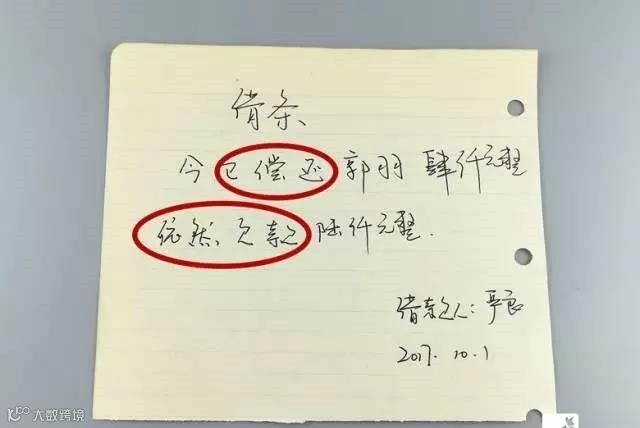 借条
今已偿还郭羽肆仟元整
依然欠款陆仟元整.
借款人:严良
2017.10.1
大数跨境